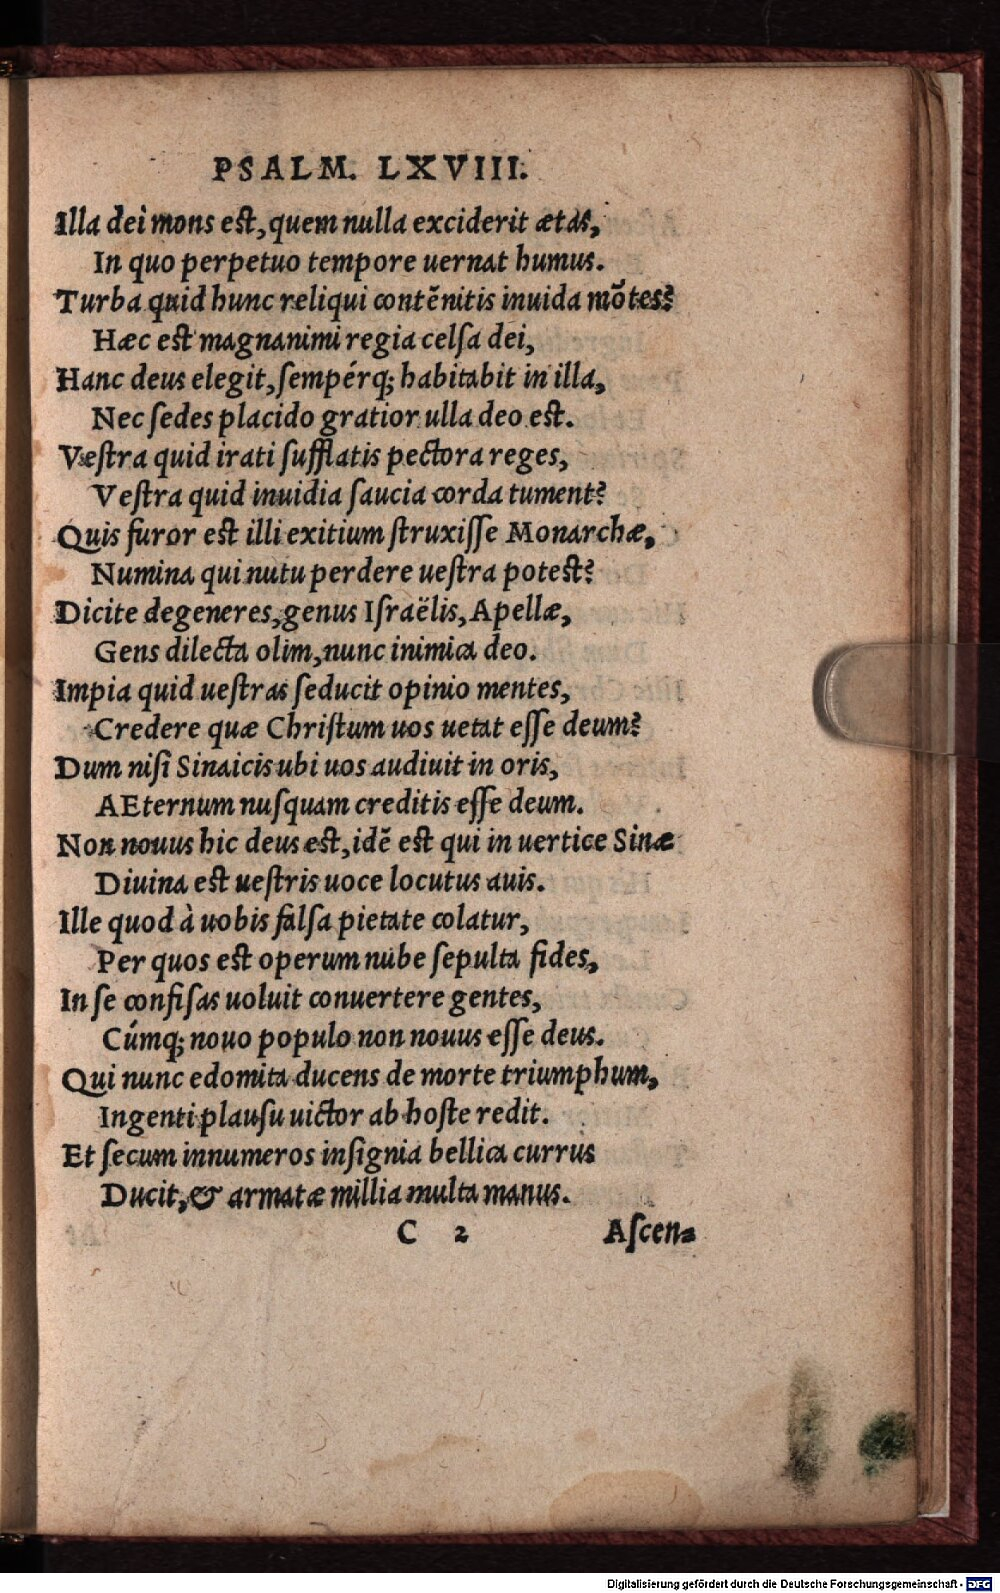 PSALM. LXVIII.
Illa dei mons est, quem nulla exciderit ætas,
In quo perpetuo tempore uernat humus.
Turba quid hunc reliqui contẽnitis inuida mõtes?
Hæc est magnanimi regia celſa dei,
Hanc deus elegit, ſempérq; habitabit in illa,
Nec ſedes placido gratior ulla deo est.
Veſtra quid irati ſufflatis pectora reges,
Veſtra quid inuidia ſaucia corda tument?
Quis furor est illi exitium ſtruxiſſe Monarchæ,
Numina qui nutu perdere ueſtra potest?
Dicite degeneres, genus Iſraëlis, Apellæ,
Gens dilecta olim, nunc inimica deo.
Impia quid ueſtras ſeducit opinio mentes,
Credere quæ Chriſtum uos uetat eſſe deum?
Dum niſi Sinaicis ubi uos audiuit in oris,
AEternum nuſquam creditis eſſe deum.
Non nouus hic deus est, idẽ est qui in uertice Sinæ
Diuina est ueſtris uoce locutus auis.
Ille quod à uobis falſa pietate colatur,
Per quos est operum nube ſepulta fides,
In ſe confiſas uoluit conuertere gentes,
Cúmq; nouo populo non nouus eſſe deus.
Qui nunc edomita ducens de morte triumphum,
Ingenti plauſu uictor ab hoſte redit.
Et ſecum innumeros inſignia bellica currus
Ducit, & armatæ millia multa manus.
C 2 Aſcen⸗
Digitalisierung gefördert durch die Deutsche Forschungsgemeinschaft - DFG